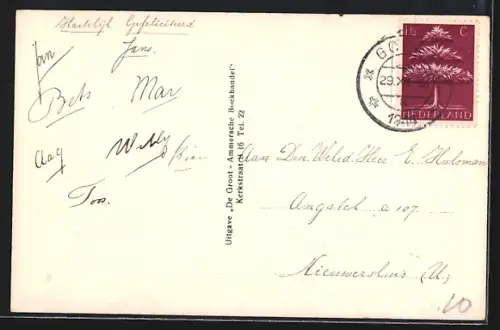 Hartelijk Gefeliciteerd
Jan
Jans.
Bets
Mar
Aag
Willy
Toos.
Uitgave „De Groot - Ammersche Boekhandel"
Kerkstraat 16 Tel. 22
1½ C
NEDERLAND
GO
29.XII
Aan Den Weled. Heer E.
Angstel a 107.
Nieuwersluis (U.)
10